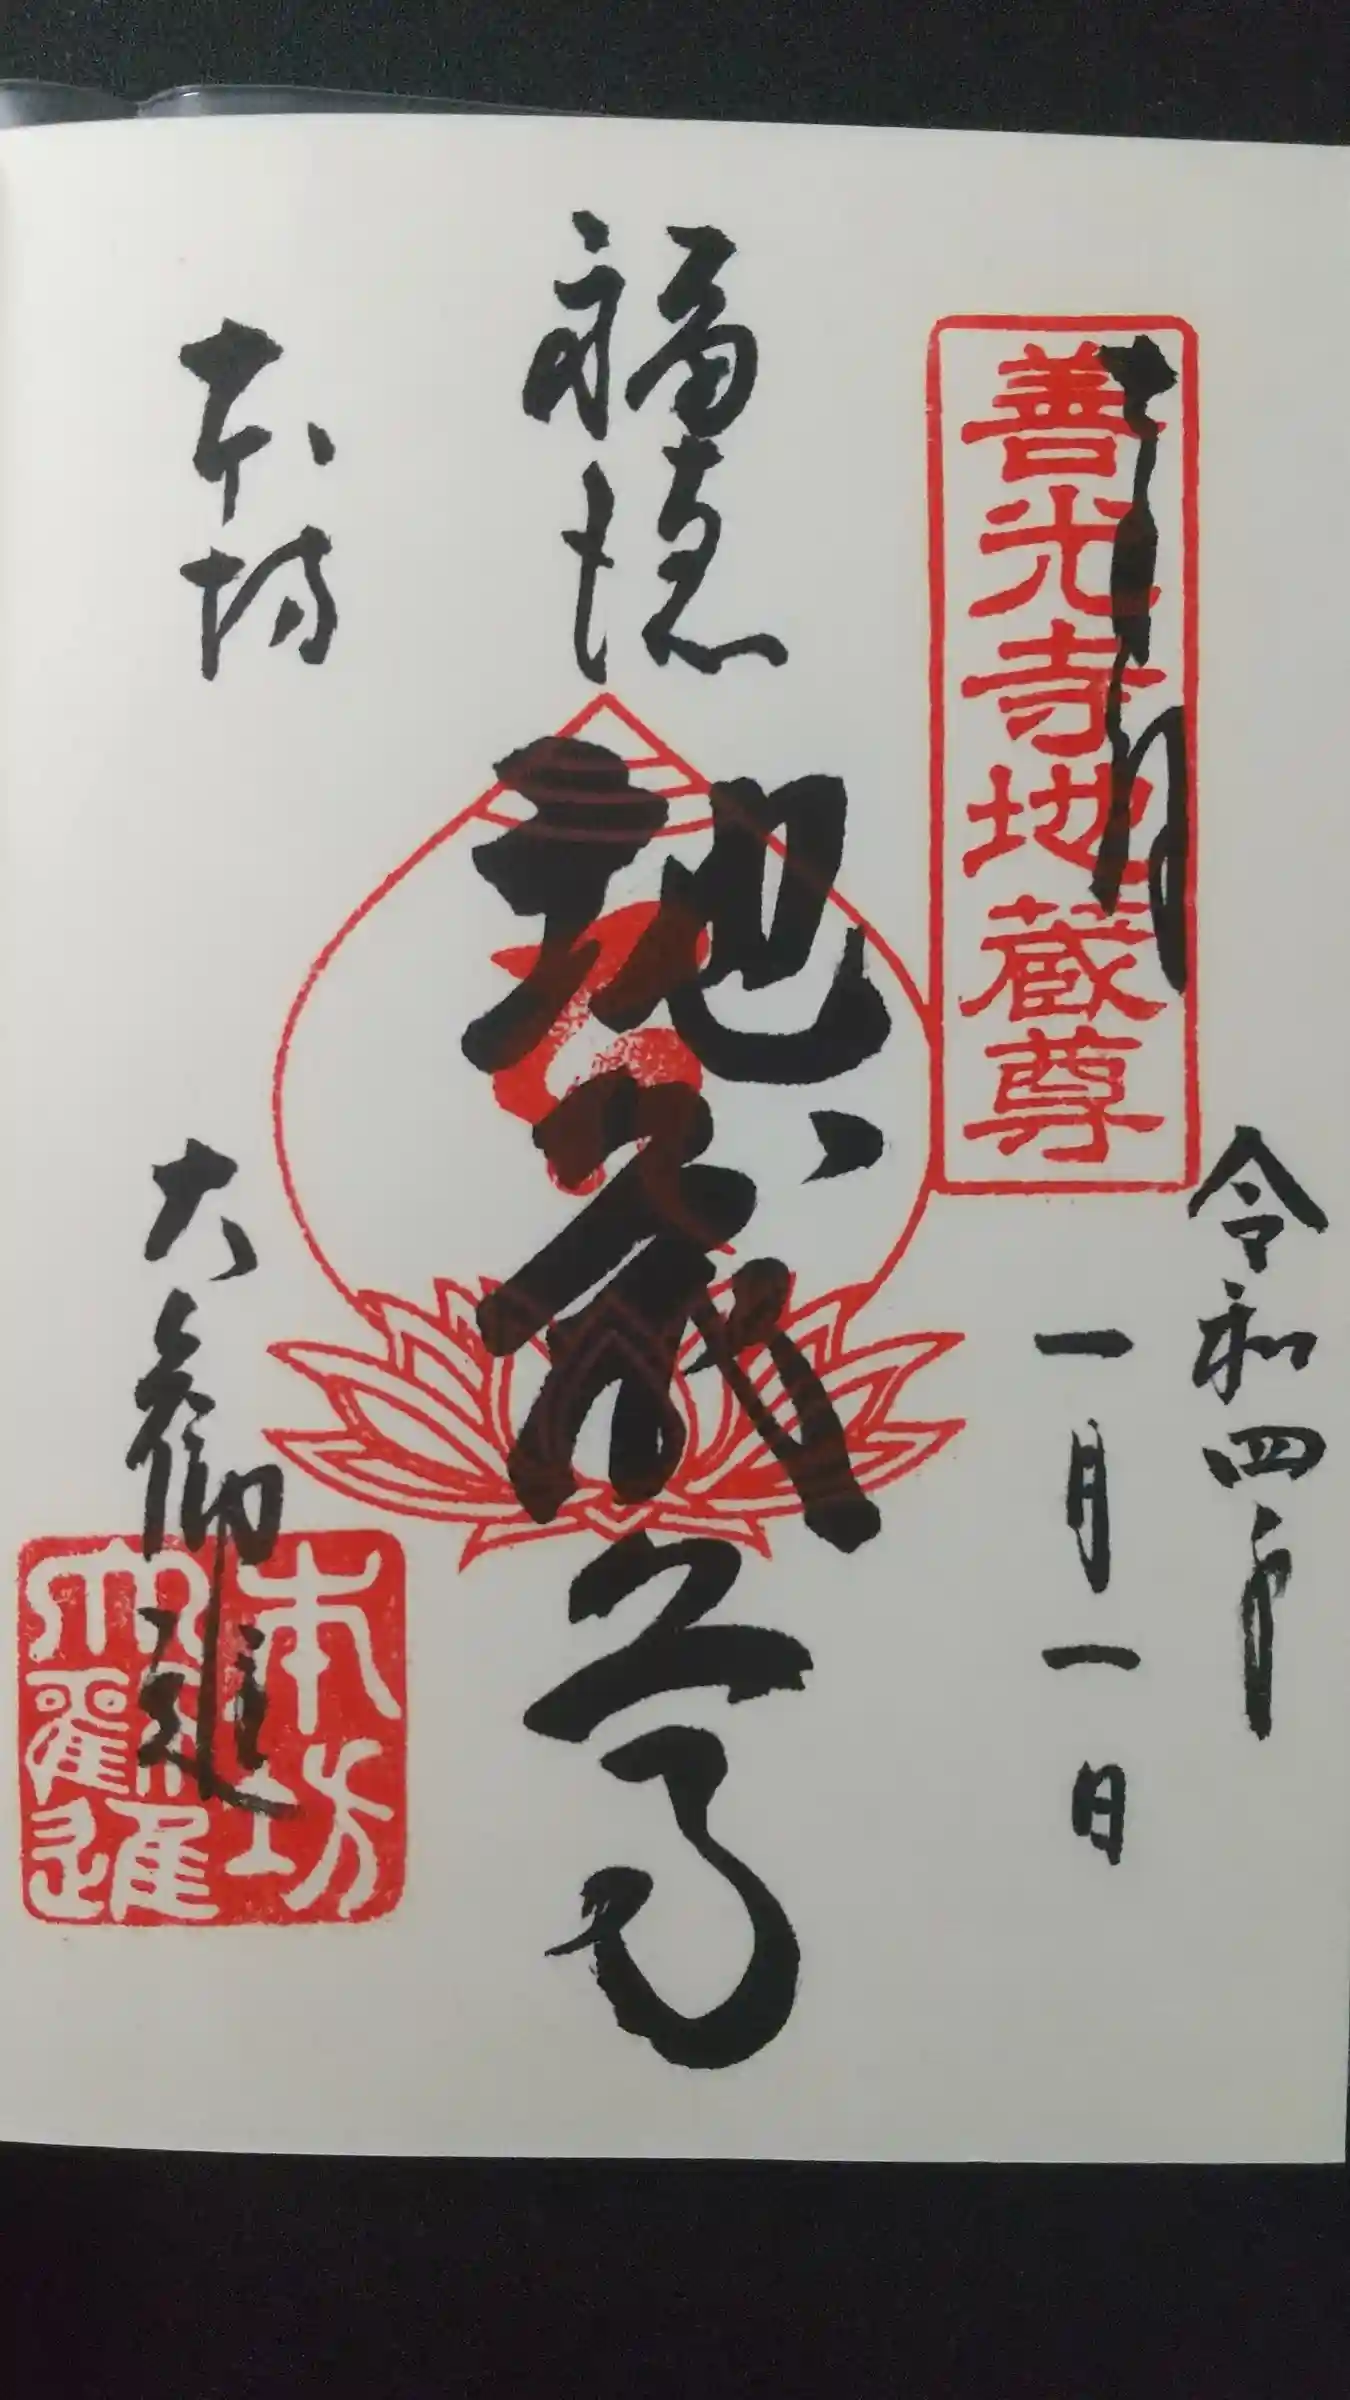 奉拝
善光寺地蔵尊
令和四年
一月一日
福徳
地蔵尊
本坊
大勧進
本坊
大勧進